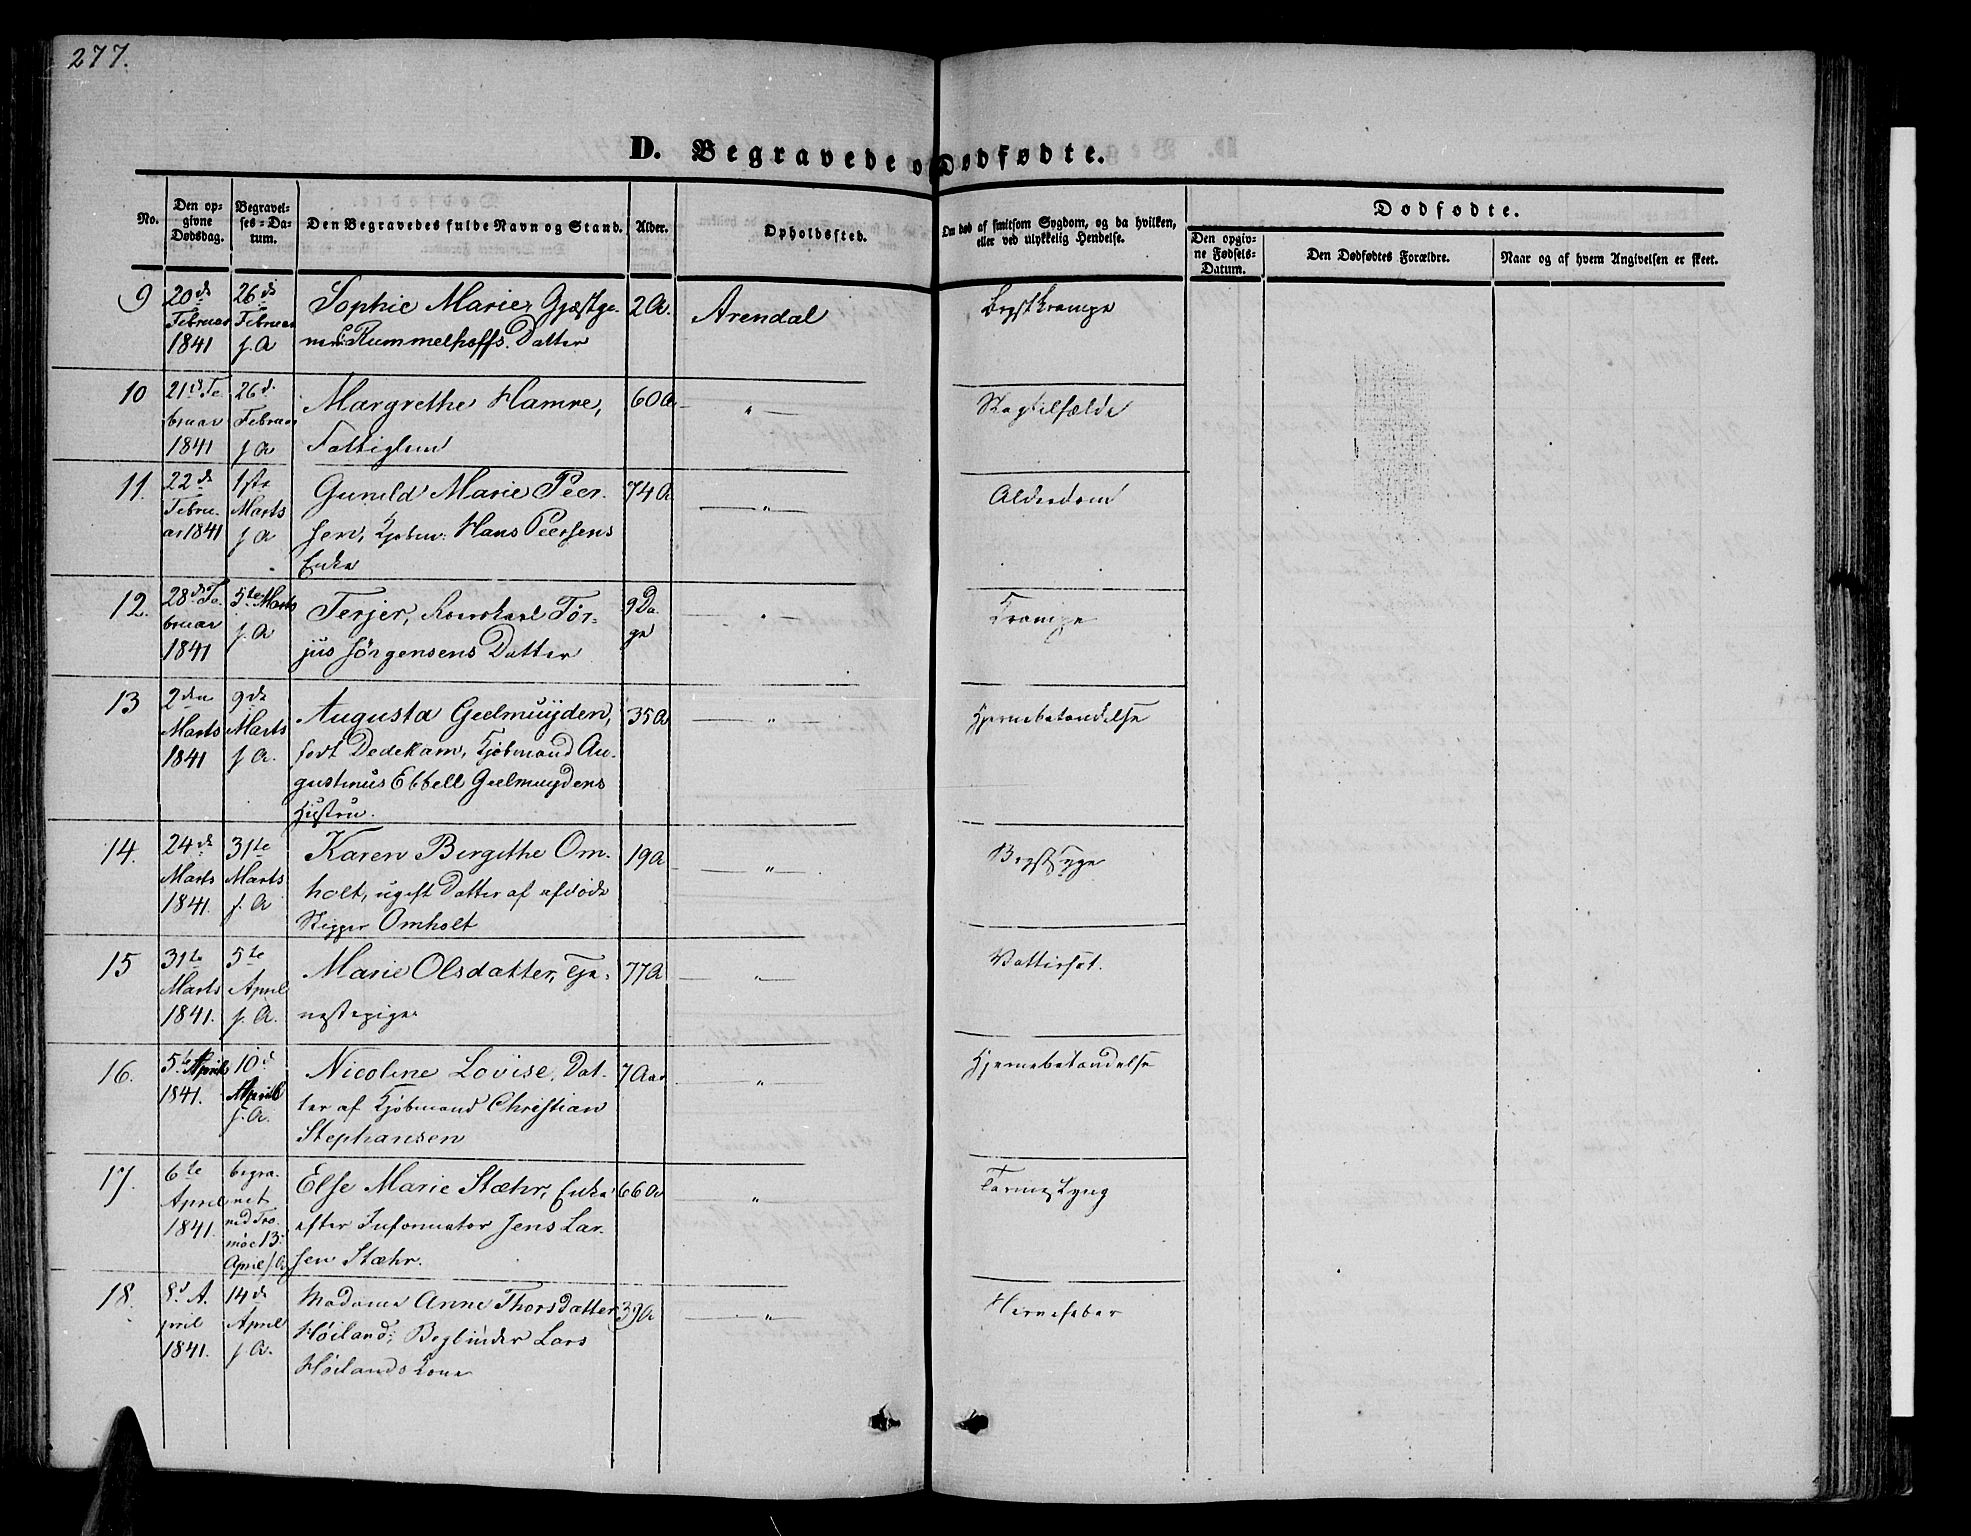 277.
D. Begravede o Dødfødte.
No.
Den op-
givne
Dødsdag.
Begravel-
ses-Da-
tum.
Den Begravedes fulde Navn og Stand.
Alder.
Opholdssted.
Om død af smitsom Sygdom, og da hvilken,
eller ved ulykkelig Hendelse.
Dødfødte.
Den opgiv-
ne Fødsels-
Datum.
Den Dødfødtes Forældre.
Naar og af hvem Angivelsen er skeet.
9
20de
Februar
1841
26de
Februar
s. A
Sophie Marie, Gjæstgi-
ver Rummelhoffs Datter
2 A.
Arendal
Brystkrampe
10
21de Fe
bruar
1841
26d
Februar
s. A
Margrethe Hamre,
Fattiglem
60 A
"
Slagtilfælde
11.
22de
Febru-
ar 1841
1ste
Marts
s. A
Gunild Marie Peer-
sen, Kjøbm: Hans Peersens
Enke
74 A
"
Alderdom
12.
28d Fe-
bruar
1841
5te Marts
s. A
Terjer, Tør-
jus Jörgensens Datter
9 Da-
ge
"
Krampe
13
2den
Marts
1841
9de
Marts
s. A.
Augusta Geelmuyden,
født Dedekam, Kjøbmand Au-
gustinus Ebbell Geelmuydens
Hustru.
35 A
"
Hjernebetændelse
14.
24de
Marts
1841.
31te
Marts
s. A
Karen Birgithe Om-
holt, ugift Datter af afdøde
Skipper Omholt
19 A
"
Brystsyge
15
31te
Marts
1841.
5te
April
s. A.
Marie Olsdatter, Tje-
nestepige
77 A
"
Vattersot.
16.
5te April
1841.
10d
April
s. A.
Nicoline Lovise, Dat-
ter af Kjøbmand Christian
Stephansen
7 Aar
"
Hjernebetændelse
17.
6te
April
1841.
begra-
vet
ved Tro-
møe 13
April s. A
Else Marie Stæhr, Enke
efter Informator Jens Lar-
sen Stæhr.
66 A
"
Tarmeslyng
18.
8d A-
pril
1841.
14de
April
s. A.
Madame Anne Thorsdatter
Høiland, Bogbinder Lars
Høilands Kone
39 A
"
Nervefeber